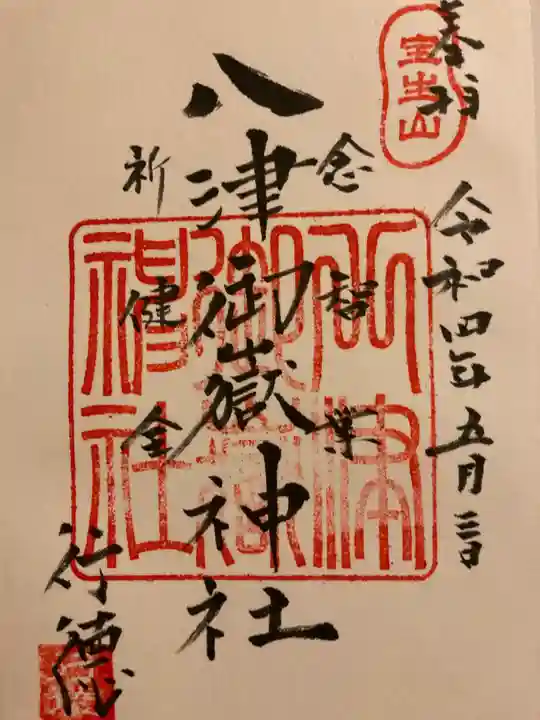 奉拝
宝生山
令和四年五月三日
八津御嶽神社
八津御嶽神社
祈
健全
行徳